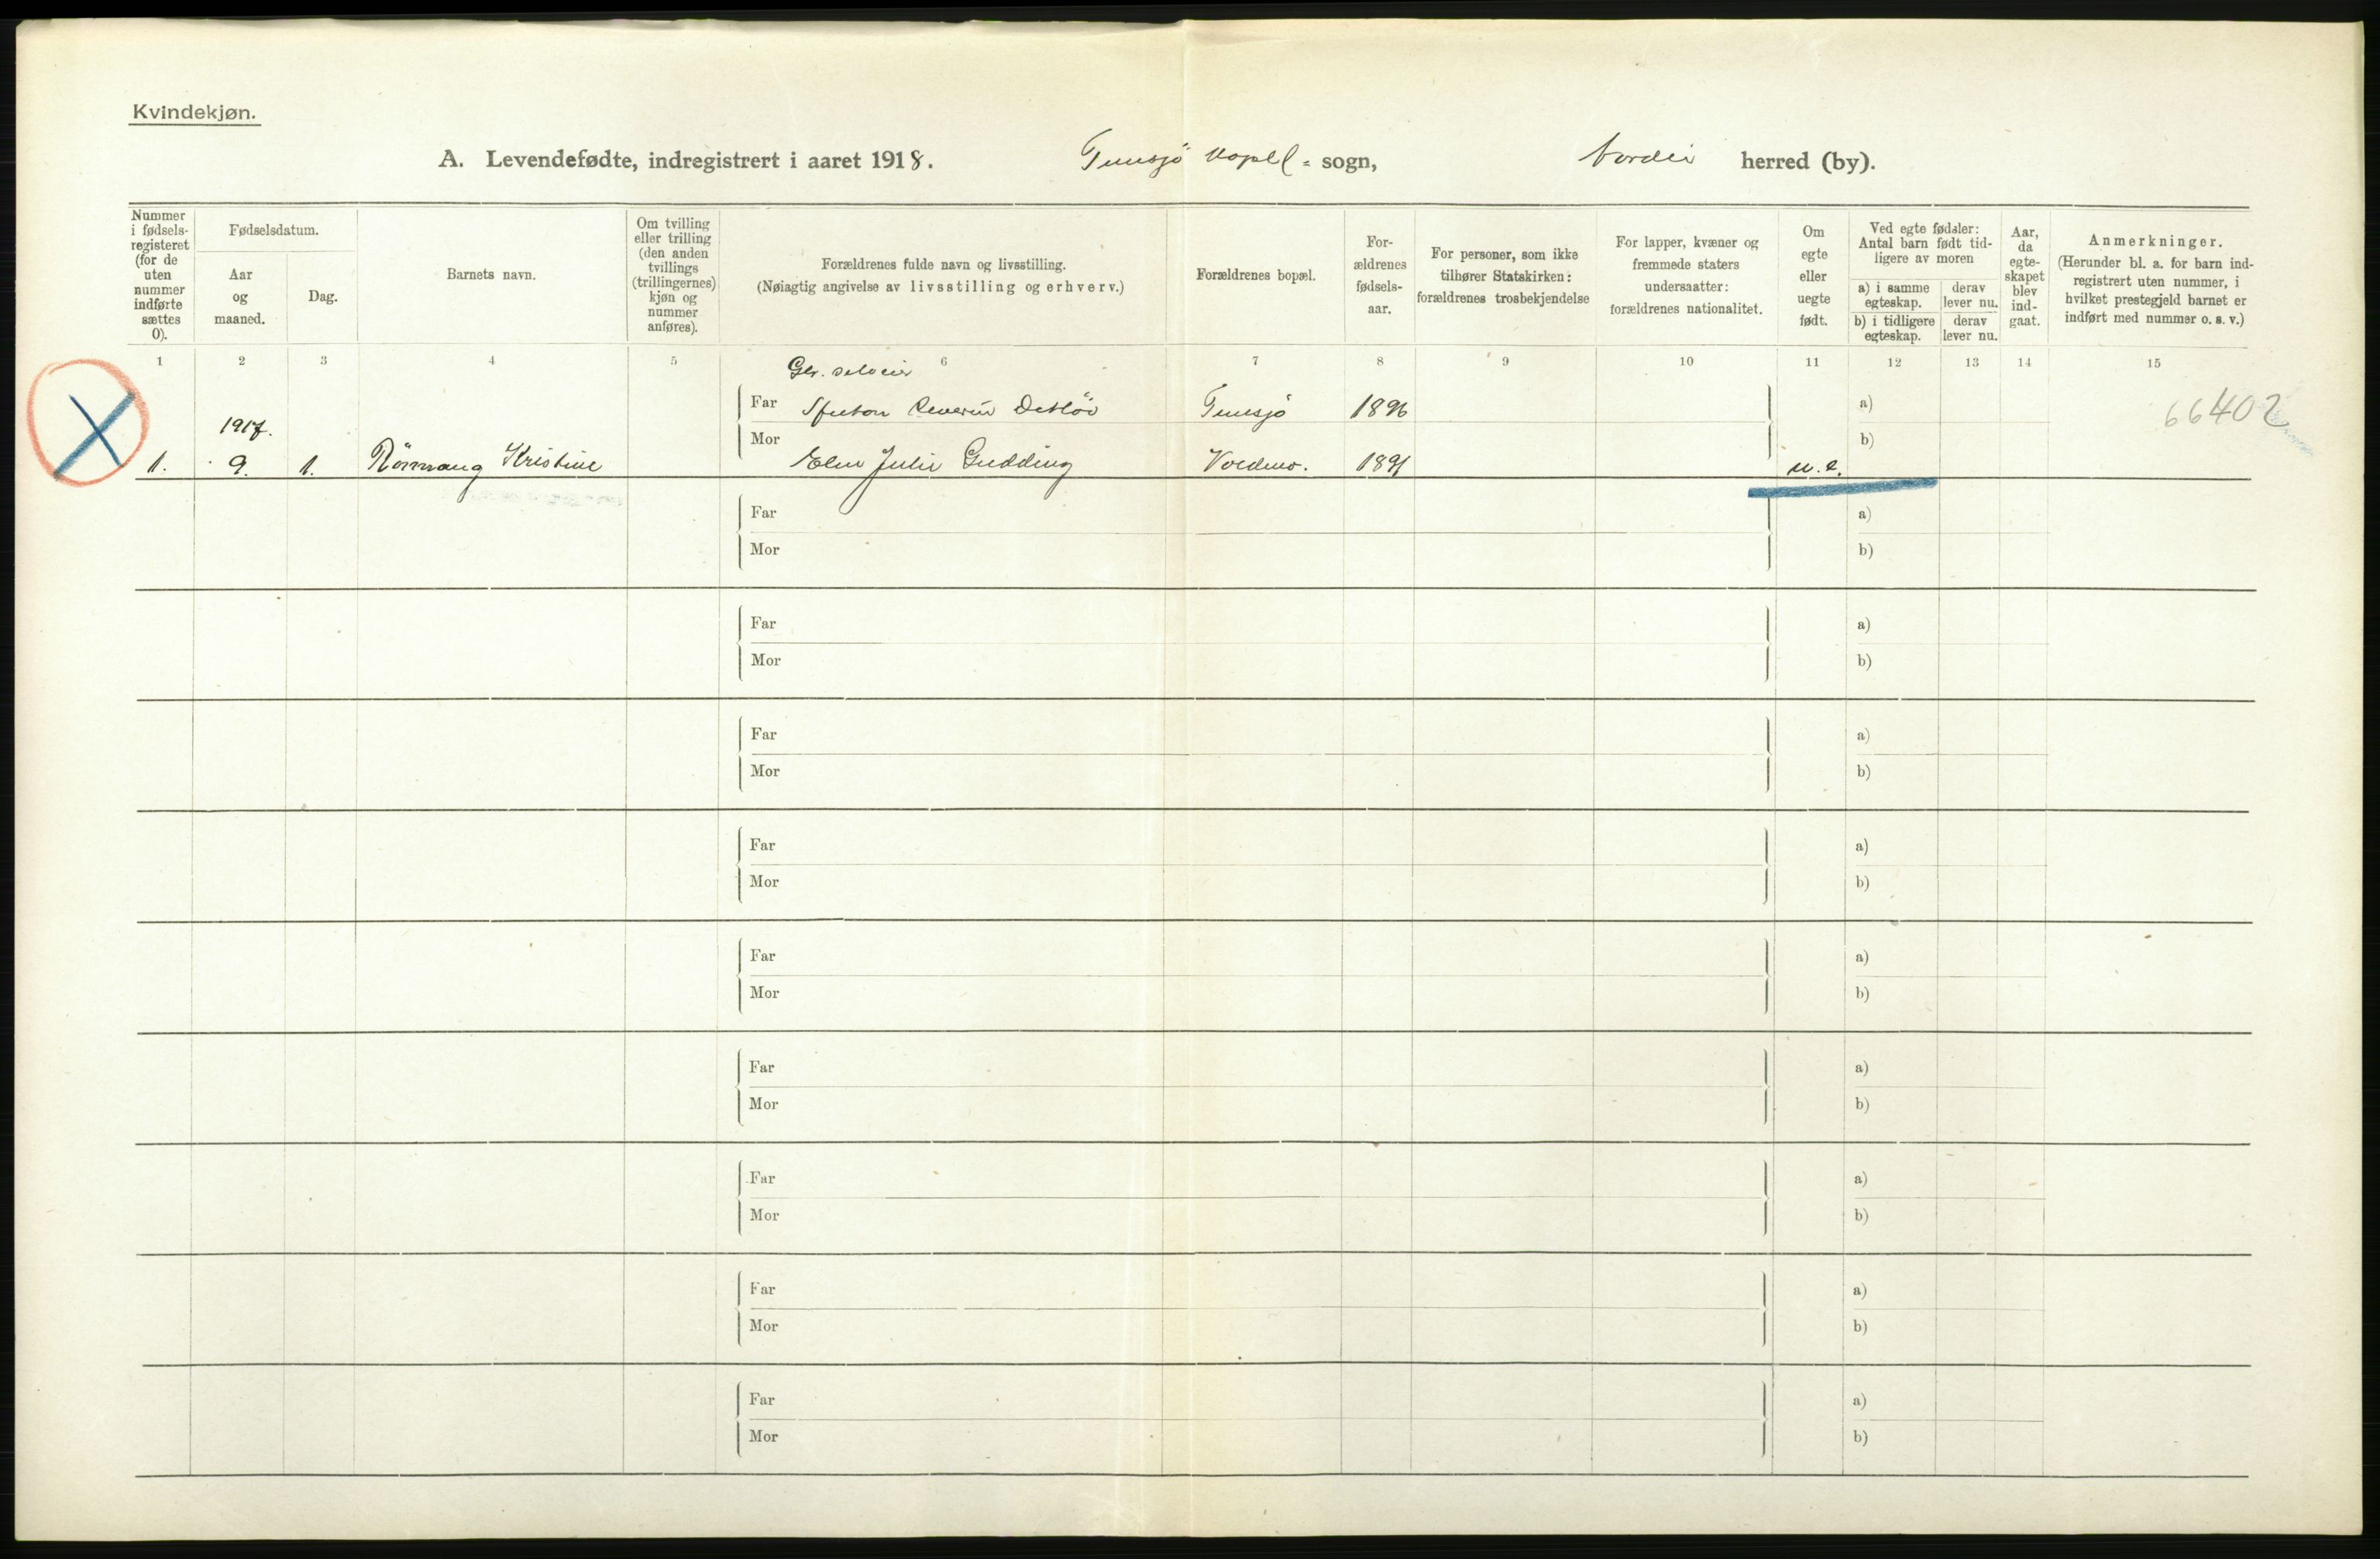 Kvindekjøn.
A. Levendefødte, indregistrert i aaret 1918. Tunsjø kapel = sogn, Nordli herred (by).
Nummer i fødsels-registeret (for de uten nummer indførte sættes 0).
Fødselsdatum.
Aar og maaned.
Dag.
Barnets navn.
Om tvilling eller trilling (den anden tvillings (trillingernes) kjøn og nummer anføres).
Forældrenes fulde navn og livsstilling.
(Nøiagtig angivelse av livsstilling og erhverv.)
Forældrenes bopæl.
For-ældrenes fødsels-aar.
For personer, som ikke tilhører Statskirken: forældrenes trosbekjendelse
For lapper, kvæner og fremmede staters undersaatter: forældrenes nationalitet.
Om egte eller uegte født.
Ved egte fødsler: Antal barn født tid-ligere av moren
a) i samme egteskap.
derav lever nu.
b) i tidligere egteskap.
derav lever nu.
Aar, da egte-skapet blev ind-gaat.
Anmerkninger.
(Herunder bl. a. for barn ind-registrert uten nummer, i hvilket prestegjeld barnet er indført med nummer o. s. v.)
1 2 3 4 5 6 7 8 9 10 11 12 13 14 15
Gbr. selveier
Far Tunsjø 1896 a) 66402
1917.
Mor b)
1. 9. 1. Rønnaug Kristine Elen Julie Gudding 1891 u.e.
Far a)
Mor b)
Far a)
Mor b)
Far a)
Mor b)
Far a)
Mor b)
Far a)
Mor b)
Far a)
Mor b)
Far a)
Mor b)
Far a)
Mor b)
Far a)
Mor b)